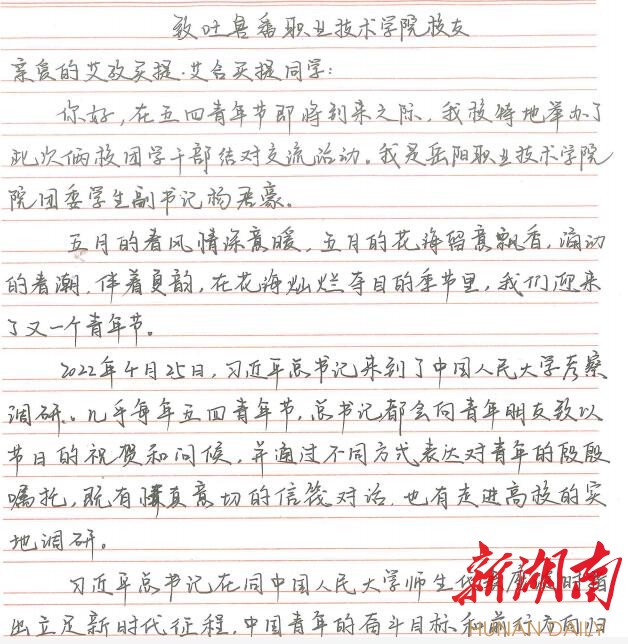 致吐鲁番职业技术学院校友
亲爱的艾孜买提·艾合买提同学：
你好，在五四青年节即将到来之际，我校特地举办了
此次俩校团学干部结对交流活动。我是岳阳职业技术学院
院团委学生副书记杨君豪。
五月的春风情深意暖，五月的花海留意飘香，涌动
的春潮，伴着夏韵，在花海灿烂夺目的季节里，我们迎来
了又一个青年节。
2022年4月25日，习近平总书记来到了中国人民大学考察
调研。几乎每年五四青年节，总书记都会向青年朋友致以
节日的祝贺和问候，并通过不同方式表达对青年的殷殷
嘱托，既有情真意切的信笺对话，也有走进高校的实
地调研。
习近平总书记在同中国人民大学师生代表座谈时指
出立足新时代征程，中国青年的奋斗目标和前行方向归
新湖南
HUNAN DAILY